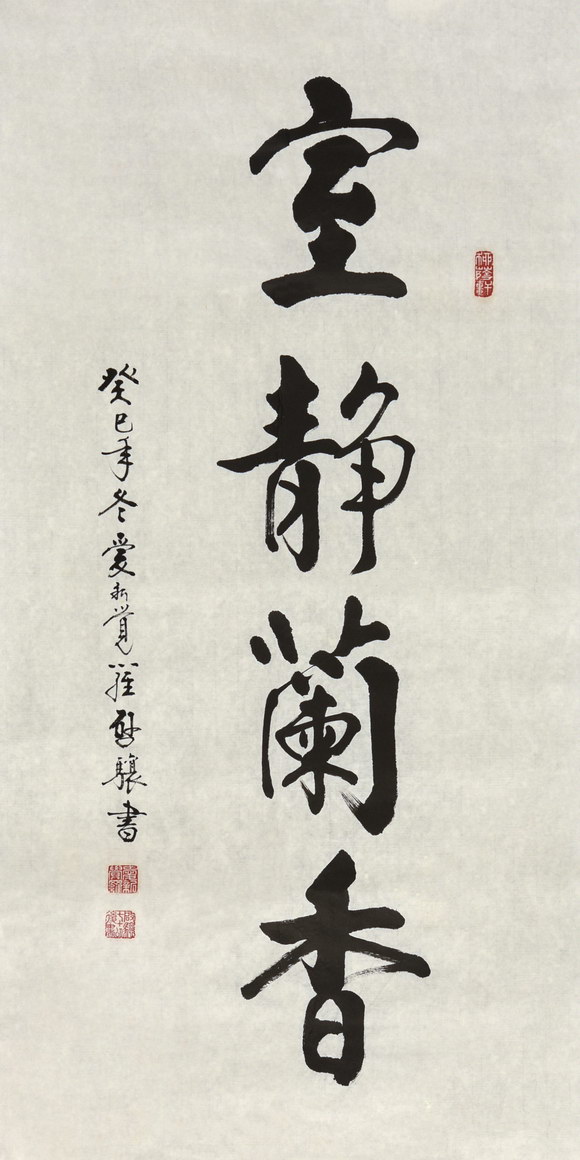 室靜蘭香
癸巳年冬愛新覺羅啟驤書